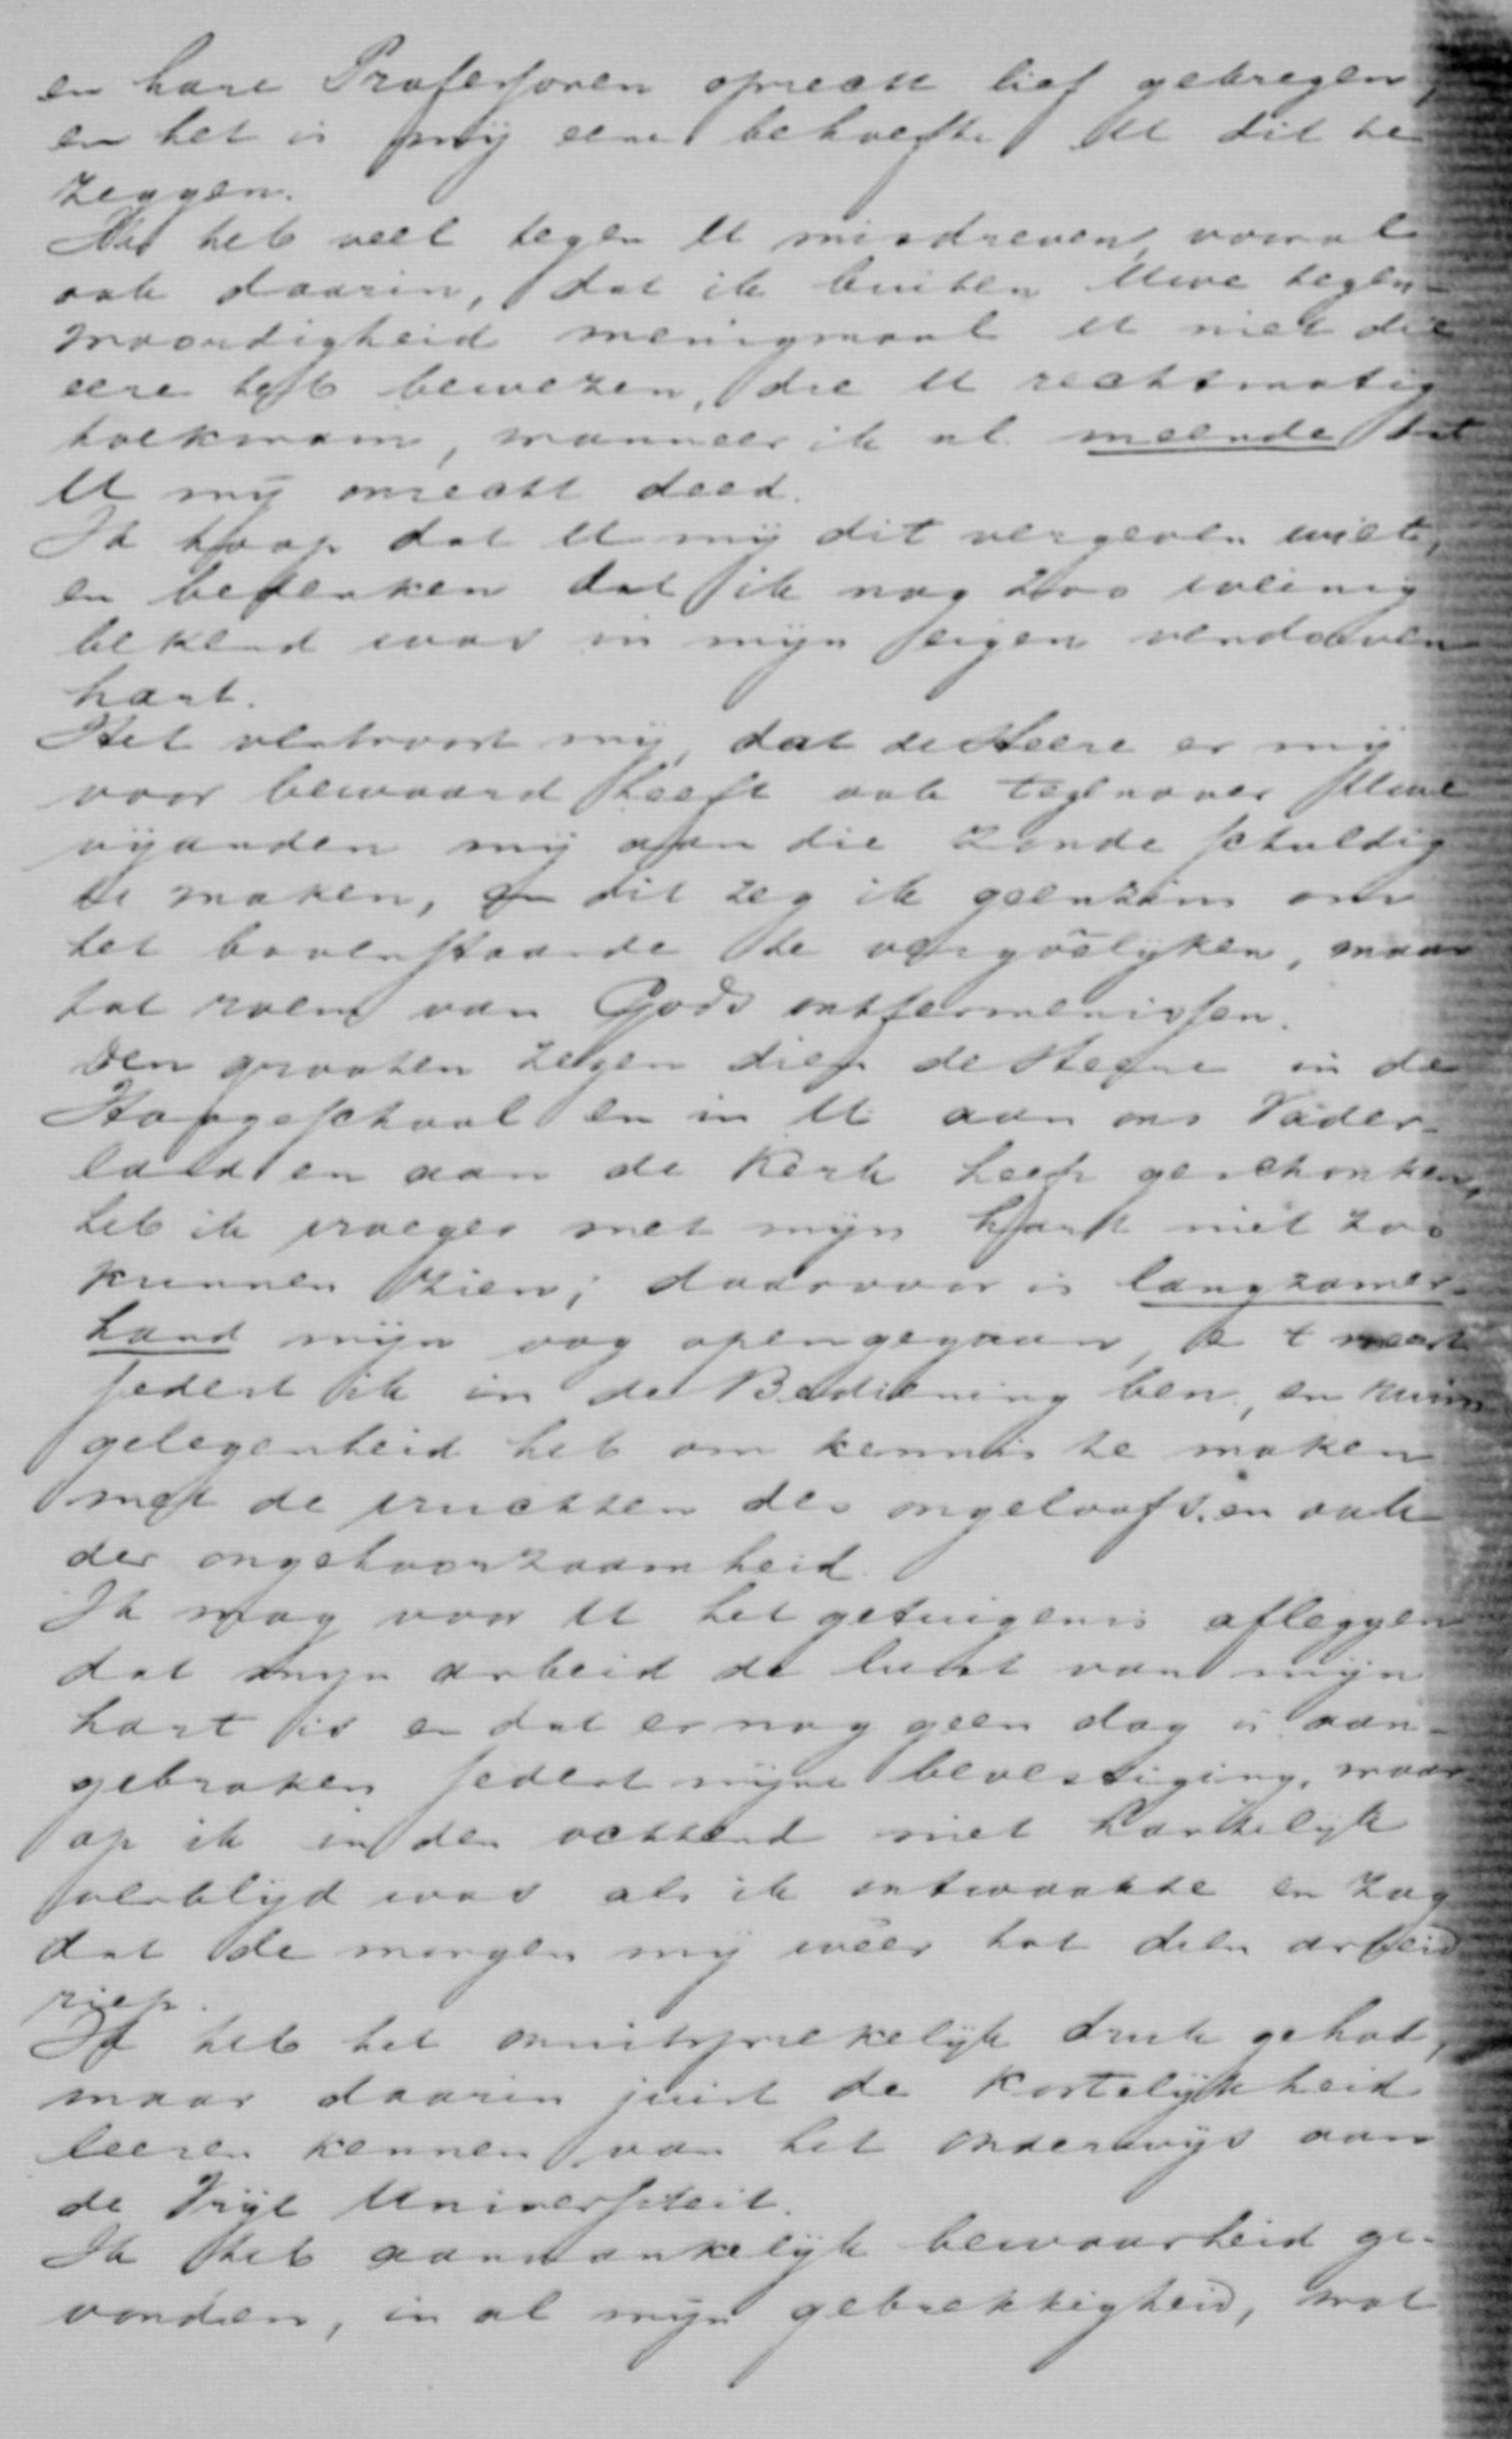 en hare Professoren oprecht lief gekregen,
en het is mij eene behoefte U dit te
zeggen.
heb veel tegen U misdreven, vooral
ook daarin, dat ik buiten Uwe tegen-
woordigheid menigmaal U niet die
eere heb bewezen, die U rechtmatig
toekwam, wanneer ik nl. meende dat
U mij onrecht deed.
Ik hoop dat U mij dit vergeven wilt,
en bedenken dat ik nog zoo weinig
bekend was in mijn eigen verdorven
hart.
Het vertroost mij, dat de Heere er mij
voor bewaard heeft ook tegenover Uwe
vijanden mij aan die zonde schuldig
te maken, en dit zeg ik geenszins om
het bovenstaande te vergoêlijken, maar
tot roem van Gods ontfermenissen.
Den grooten zegen dien de Heere in de
Hoogeschool en in U aan ons Vader-
land en aan de Kerk heeft geschonken,
heb ik vroeger met mijn hart niet zoo
kunnen zien; daarvoor is langzamer-
hand mijn oog opengegaan, e 't meest
sedert ik in de Bediening ben, en ruim
gelegenheid heb om kennis te maken
met de vruchten des ongeloofs en ook
der ongehoorzaamheid.
Ik mag voor U het getuigenis afleggen
dat mijn arbeid de lust van mijn
hart is en dat er nog geen dag is aan-
gebroken sedert mijne bevestiging, waar-
op ik in den ochtend niet hartelijk
verblijd was als ik ontwaakte en zag
dat de morgen mij wêer tot dien arbeid
riep.
Ik heb het onuitsprekelijk druk gehad,
maar daarin juist de kostelijkheid
leeren kennen van het onderwijs aan
de Vrije Universiteit.
Ik heb aanvankelijk bewaarheid ge-
vonden, in al mijn gebrekkigheid, wat